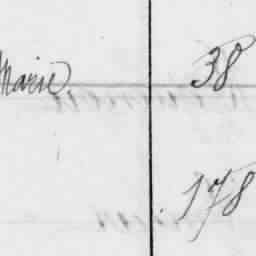 Marie 38
178